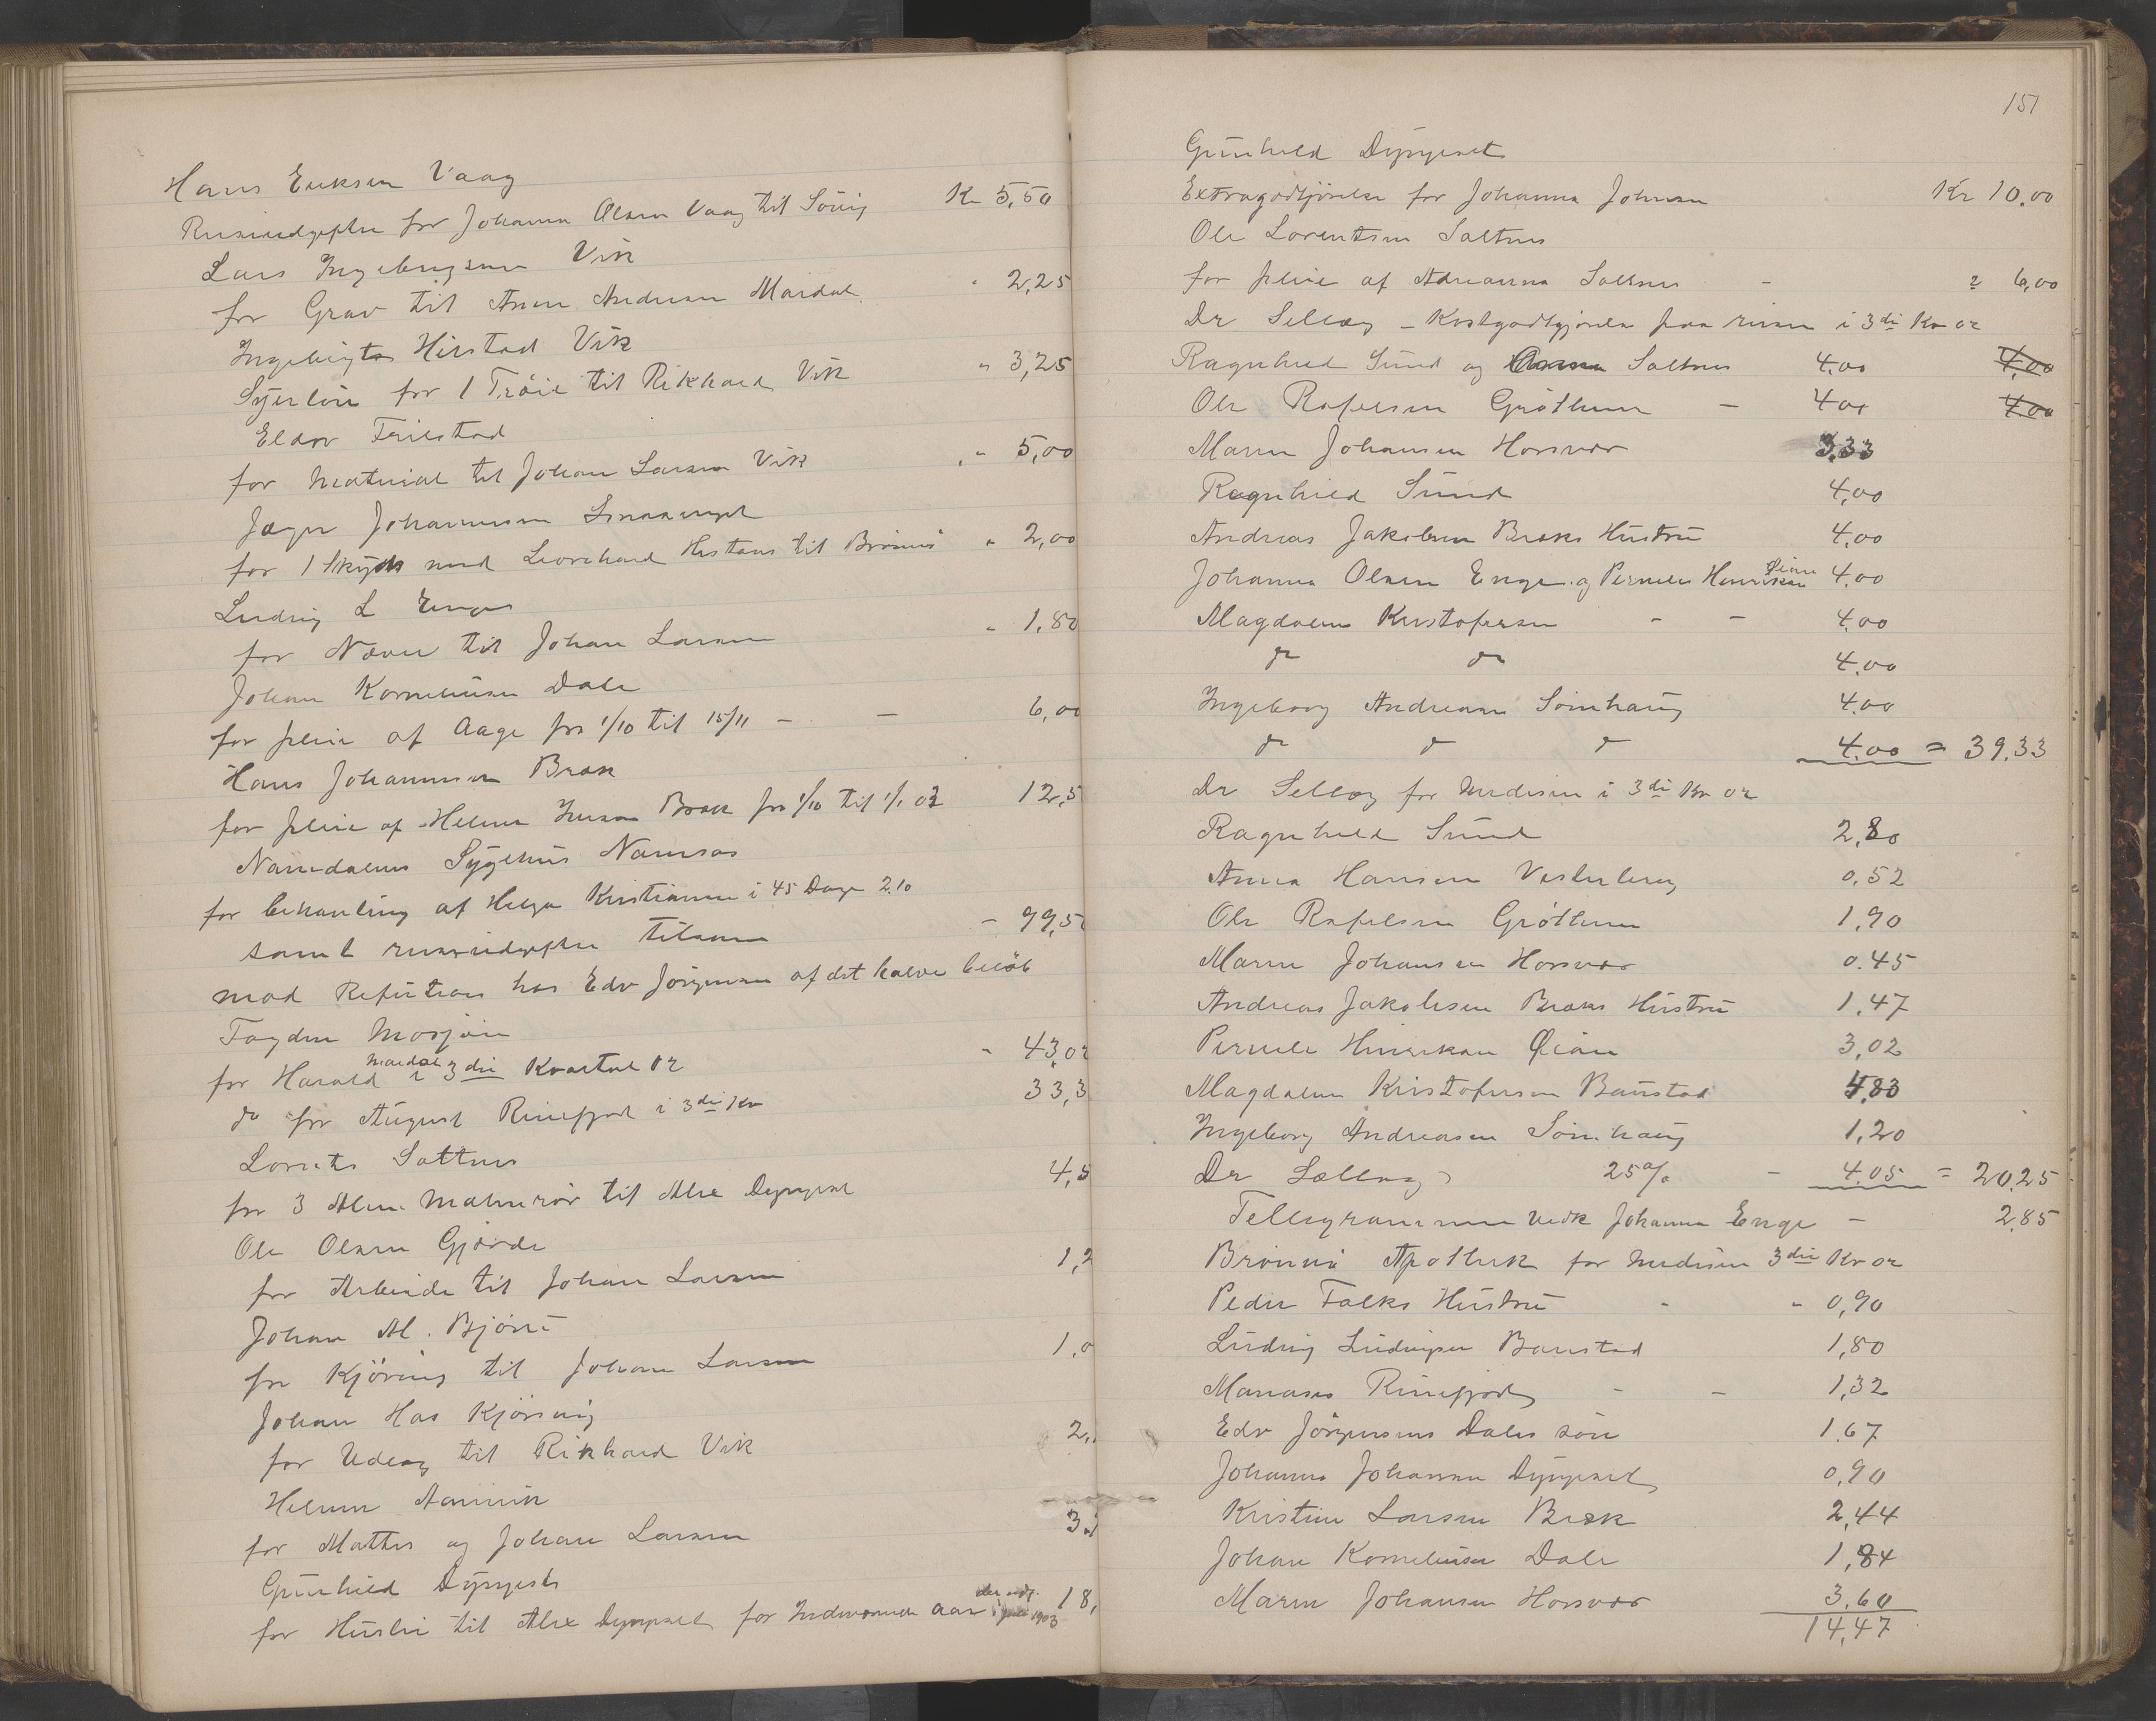 Hans Eriksen Vaag
Reiseudgifter for Johanna Olsen Vaag til Sømig Kr 5,50
Lars Ingebrigtsen Vik
for Grav til Anne Andersen Mardal " 2,25
Ingebrigt Heistad Vik
Syerløn for 1 Trøie til Rikhard Vik " 3,25
Eldor Frilstad
for Material til Johan Larsen Vik " 5,00
Jæger Johannesen
for 1 Skyds med Leonhard Hestnes til Brønnø " 2,00
Ludvig L Enge
for Næver til Johan Larsen " 1,80
Johan Korneliusen Dale
for pleie af Aage fra 1/10 til 15/11 – – 6,00
Hans Johannesen Bræk
for pleie af Helena Bræk fra 1/10 til 1/1 03 12,5
Namdalens Sygehus Namsos
for behandling af Helga Kristiansen i 45 Dage 2.10
samt reiseudgifter tilsammen – 99,50
mod Refusion hos Edv Jørgensen af det halve beløb
Fogden Mosjøen
for Harald Mardal i 3die Kvartal 02 " 43,02
do for August Rinefjord i 3die Kv 33,3
Lorents Saltnes
for 3 Alen til Alex Dypeset 4,5
Ole Olsen Gjørde
for Arbeide til Johan Larsen 1,2
Johan Al. Bjørn
for Kjøring til Johan Larsen 1,0
Johan Has Kjørsvig
for Udlæg til Rikhard Vik 2,
Helmer Aarnvik
for Mathis og Johan Larsen 3,
Gunhild Dypeset
for Husleie til Alex Dypeset for Indeværende aar 1903 18,
151
Gunhild Dypeset
Extragodtjørelse for Johanna Johnsen Kr 10,00
Ole Lorentsen Saltnes
for pleie af Adrianna Saltnes – " 6,00
Dr Sellæg – Kostgodtgjørelse paa reiser i 3di Kv 02
Ragnhild Sund og Anna Saltnes 4,00 4,00
Ole Rafelsen Grøtheim – 4,00 4,00
Maren Johansen Horsvær 3,33
Ragnhild Sund 4,00
Andreas Jakobsen Bræks Hustru 4,00
Johanna Olsen Enge og Pernele Henriksen Øien 4,00
Magdalene Kristofersen – – 4,00
do do 4,00
Ingeborg Andreasen Sømhaug 4,00
do do do 4,00 = 39,33
Dr Sellæg for Medisin i 3di Kv 02
Ragnhild Sund 2,80
Anna Hansen Vesterberg 0,52
Ole Rafelsen Grøtheim 1,90
Maren Johansen Horsvær 0,45
Andreas Jakobsen Bræks Hustru 1,47
Pernele Henriksen Øien 3,02
Magdalene Kristofersen Baustad 4,83
Ingeborg Andreasen Sømhaug 1,20
Dr Sellæg 25% – 4,05 = 20,25
Tellegrammer vedk Johanna Enge – 2,85
Brønnø Apothek for Medisin 3die Kv 02
Peder Falks Hustru " " 0,90
Ludvig Ludvigsen Baustad 1,80
Manases Rinefjord – – 1,32
Edv Jørgensens Dales søn 1,67
Johanna Johansen Dypeset 0,90
Kristine Larsen Bræk 2,44
Johan Korneliusen Dale 1,84
Maren Johansen Horsvær 3,60
14,47